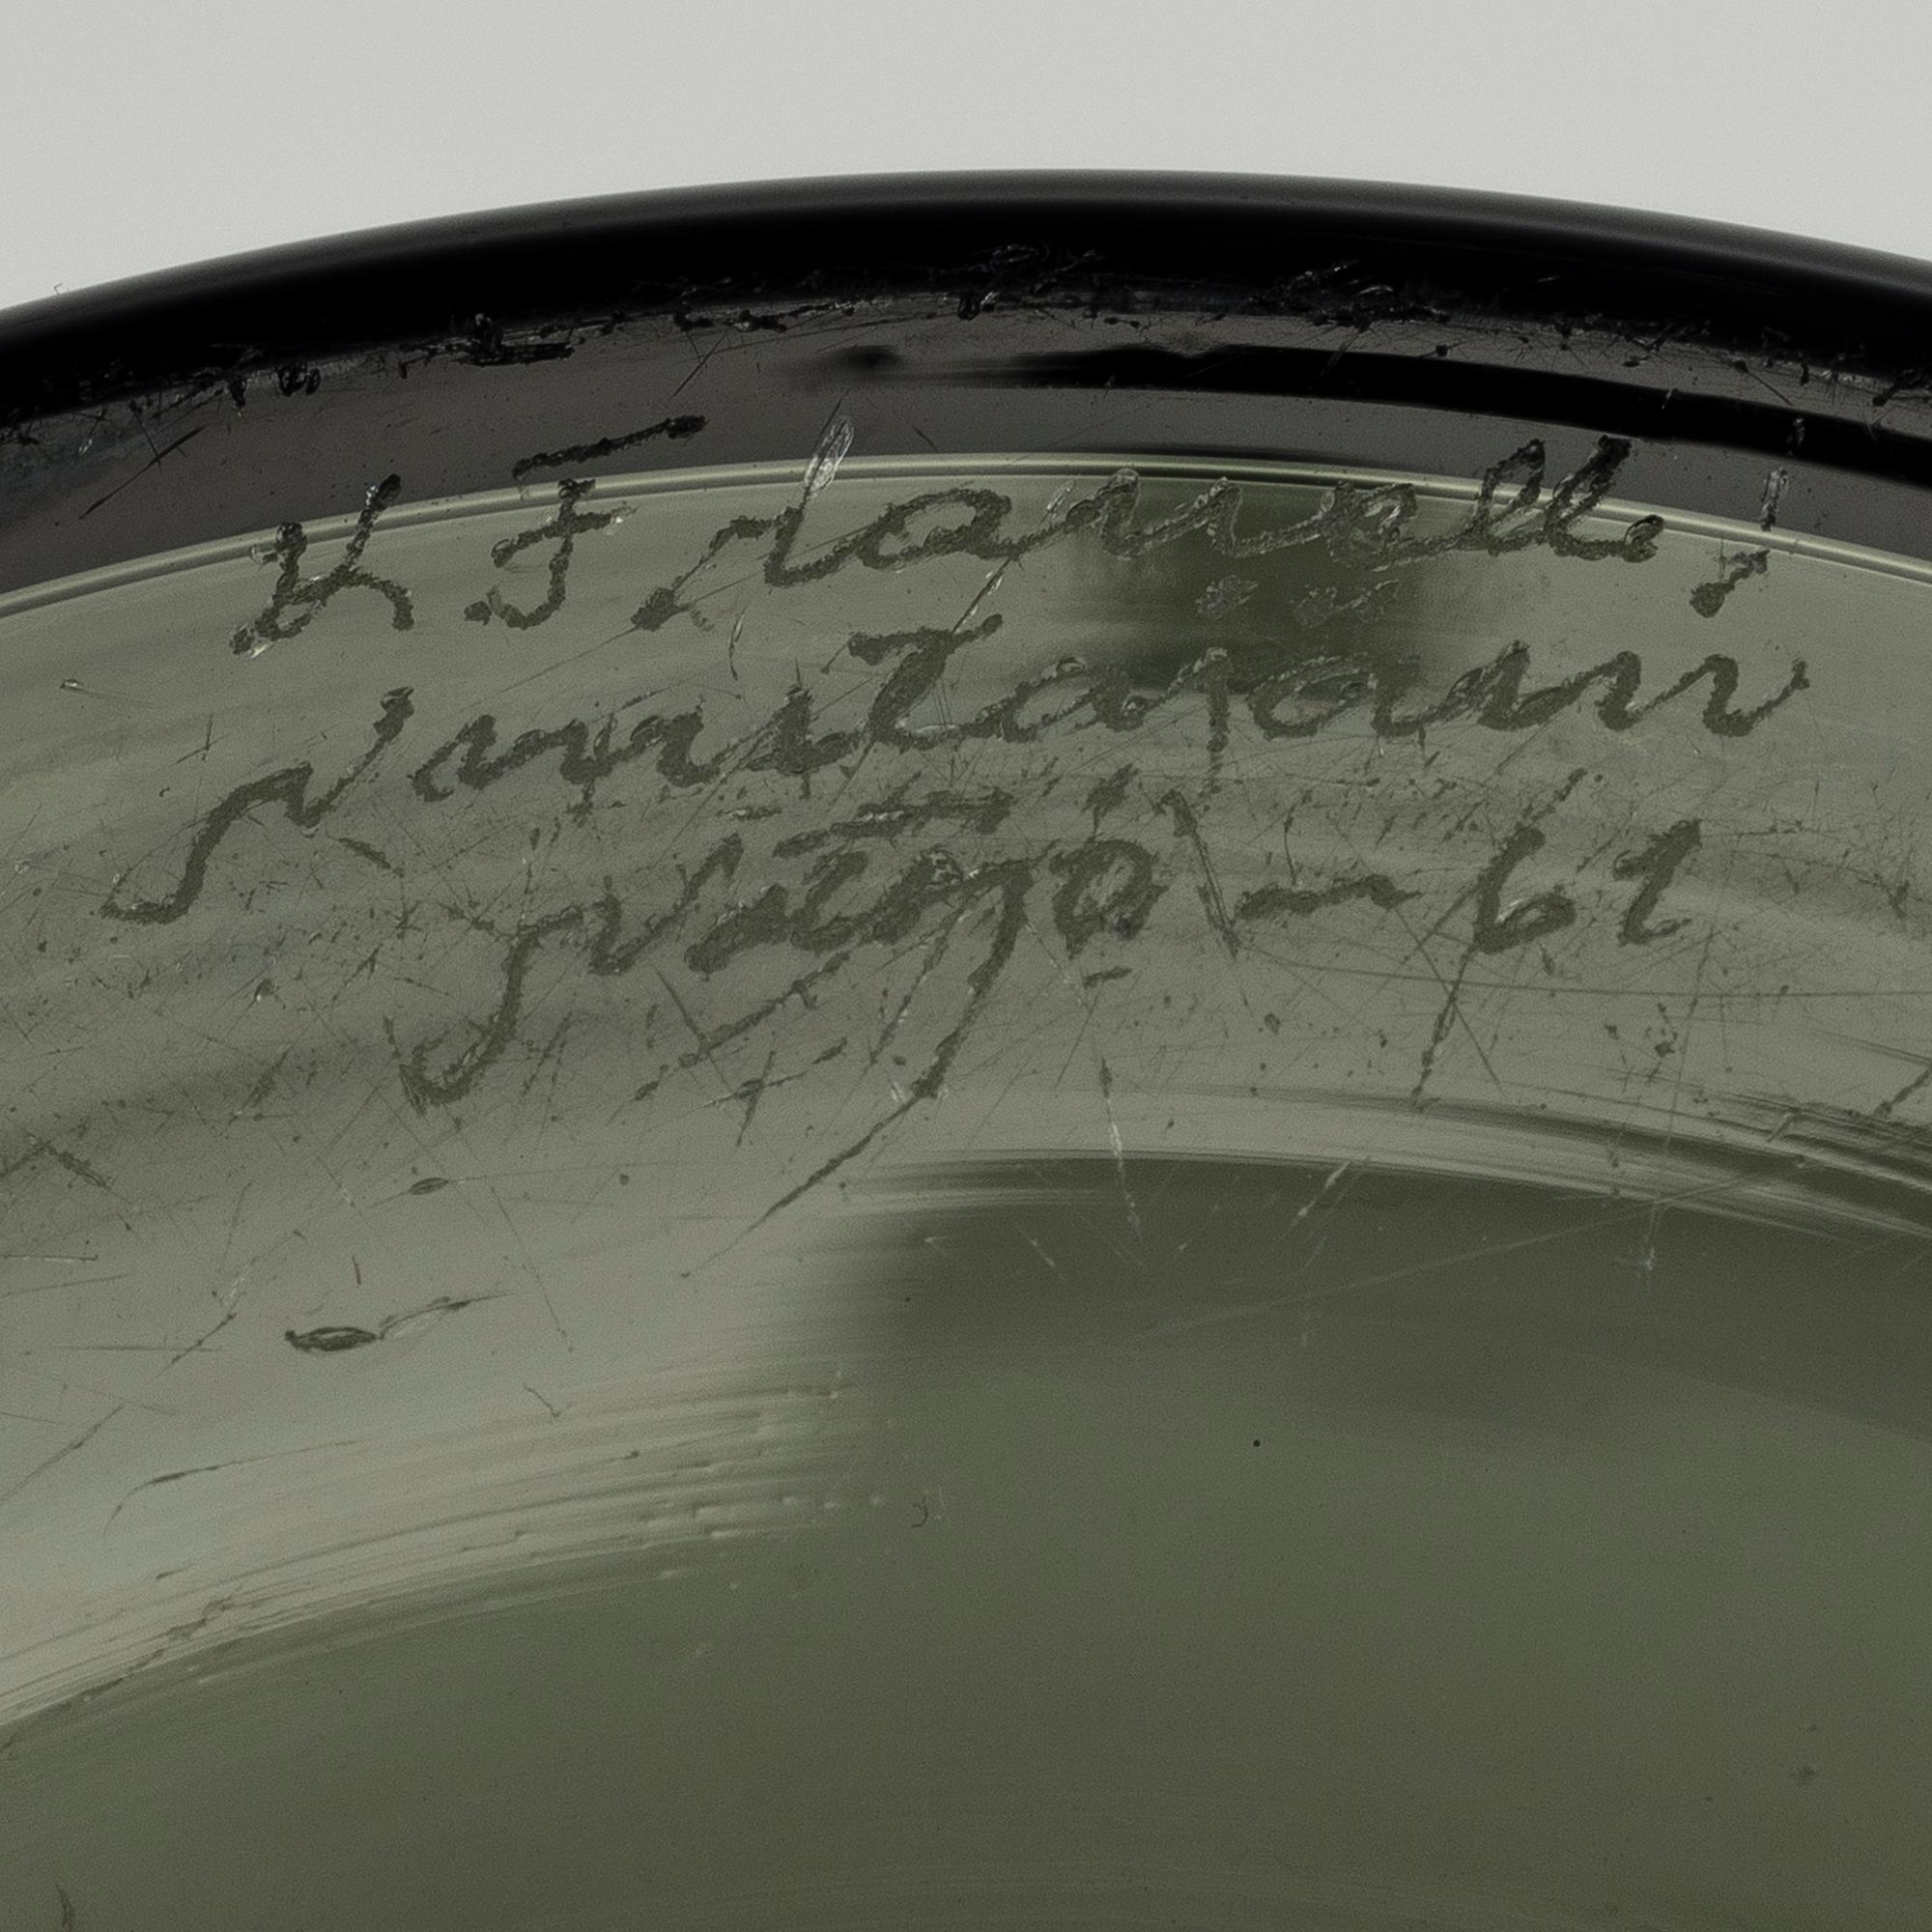 K Franck,
Nuutajärvi
Notsjö - 61